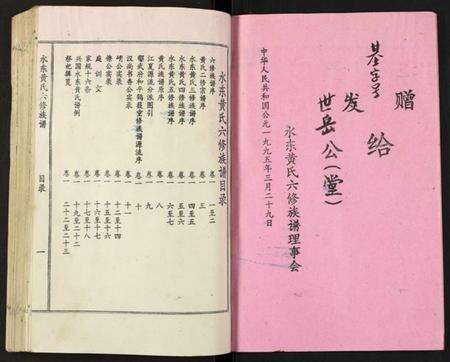 基字号
赠给
发
世岳公(堂)
中华人民共和国公元一九九五年三月二十九日
水东黄氏六修族谱理事会
水东黄氏六修族谱目录
六修族谱序 卷一 一至二
黄氏二修宗谱序 卷一 三
水东黄氏三修族谱序 卷一 四至五
水东黄氏四修族谱序 卷一 五至六
水东黄氏五修族谱序 卷一 六至七
黄氏族谱原序 卷一 八
江夏源流分派图引 卷一 九
鄂武府和平鹤薮重修族谱源流序 卷一 十
汉尚书香公实录 卷一 十一
峭公实录 卷一 十二至十四
像公实录 卷一 十五至十六
庭训文 卷一 十六至十七
家规十六条 卷一 十七至十八
兴国水东黄氏谱例 卷一 十九至二十
祭祀撰览 卷一 二十二至二十三
水东黄氏六修族谱
目录
一